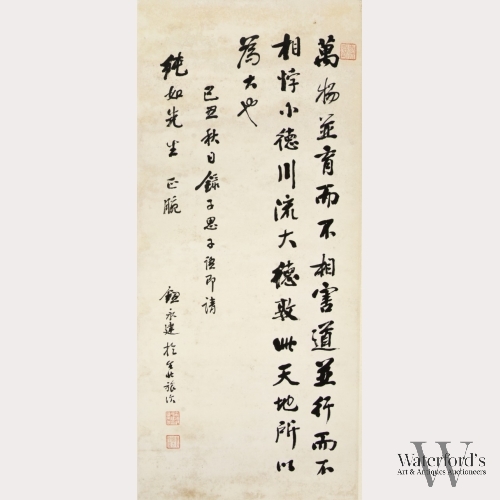 萬物並育而不相害道並行而不
相悖小德川流大德敦此天地所以
為大也
己丑秋日錄子思子語即請
純如先生 正腕
鈕永建於台北旅次
W
Waterford's
Art & Antiques Auctioneers